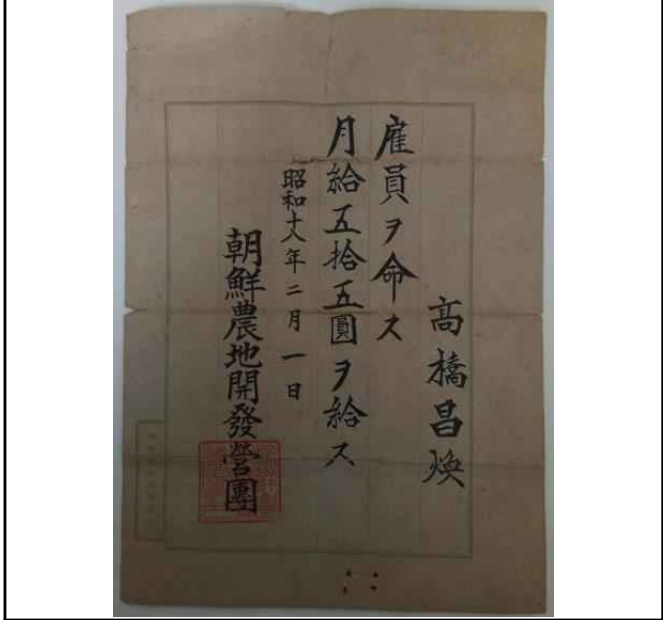 高橋昌煥
雇員ヲ命ス
月給五拾五圓ヲ給ス
昭和十八年二月一日
朝鮮農地開發營團